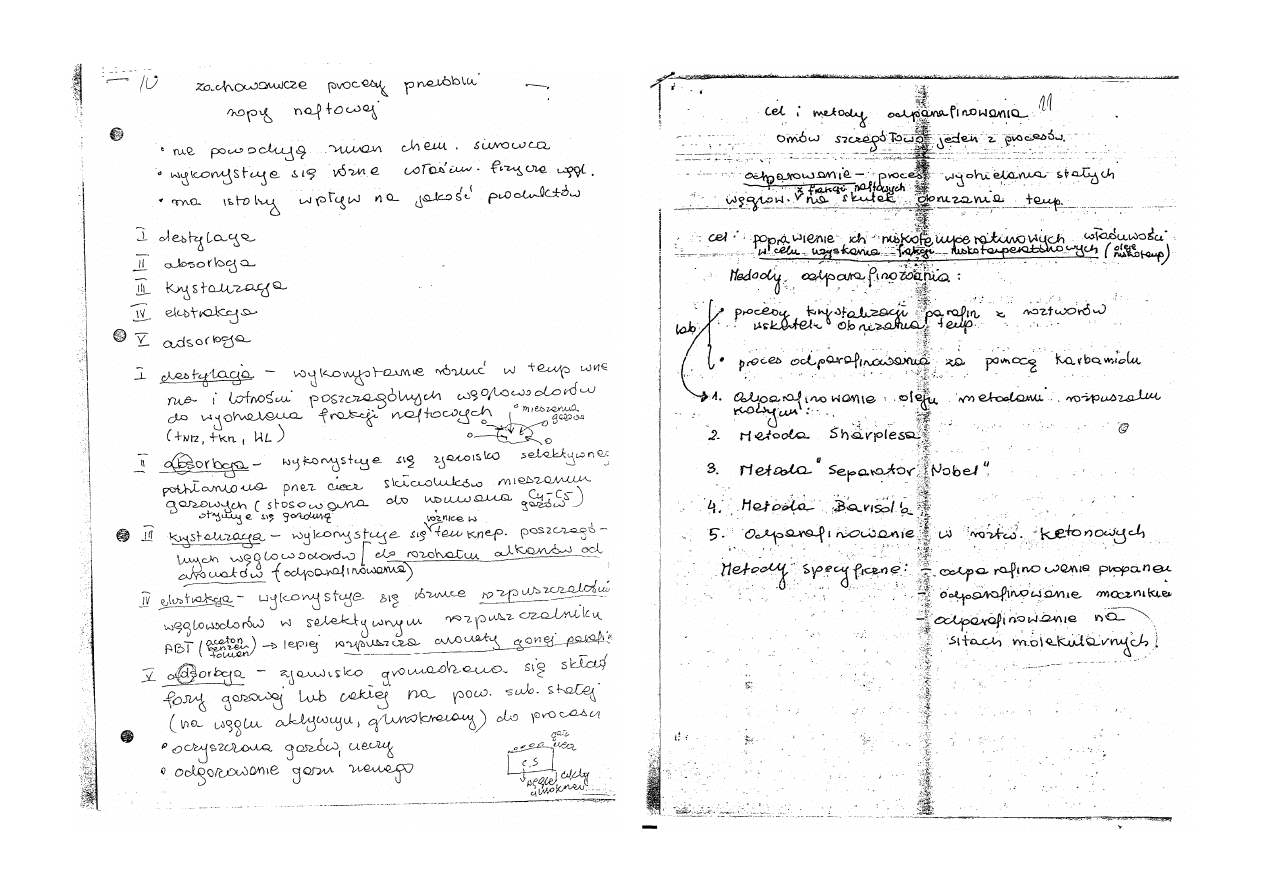 10 zachowawcze procesy przeróbki
ropy naftowej
• nie powodują zmian chem. surowca
• wykorzystuje się różne właściw. fizyczne węgl.
• ma istotny wpływ na jakość produktów
I destylacja
II absorbcja
III krystalizacja
IV ekstrakcja
V adsorbcja
I destylacja – wykorzystanie różnic w temp wrze
nia i lotności poszczególnych węglowodorów
do wydzielenia frakcji naftowych
• mieszanina
gazowa
II absorbcja – wykorzystuje się zjawisko selektywnego
pochłaniania przez ciecz składników mieszanin
gazowych (stosowana do usuwania C4-C5
gazów)
otrzymuje się gazolinę
różnice w
III krystalizacja – wykorzystuje się tem krzep. poszczegó-
lnych węglowodorów / do rozdziału alkanów od
aromatów (odparafinowania)
IV ekstrakcja – wykorzystuje się różnice rozpuszczalności
węglowodorów w selektywnym rozpuszczalniku
ABT (aceton
benzen
toluen) → lepiej rozpuszcza aromaty gorzej parafi
V adsorbcja – zjawisko gromadzenia się skład
fazy gazowej lub ciekłej na pow. sub. stałej
(na węglu aktywnym, glinokrzemiany) do procesu
• oczyszczania gazów, cieczy
• odgazowanie gazu ziemnego
gaz
c.s
węgl. ciekły
11
cel i metody odparafinowania
omów szczegółowo jeden z procesów.
odparowanie – proces wydzielania stałych
z frakcji naftowych
węglow. na skutek obniżania temp.
cel: poprawienie ich niskotemperaturowych właściwości
w celu uzyskania frakcji niskotemperaturowych (oleje
niskotemp)
Metody odparafinowania:
• procesy krystalizacji parafin z roztworów
wskutek obniżania temp.
lub
• proces odparafinowania za pomocą karbamidu
1. Odparafinowanie oleju metodami rozpuszczalni
kowymi:
2. Metoda Sharplesa
3. Metoda "Separator Nobel"
4. Metoda Barisol'a
5. Odparafinowanie w roztw. ketonowych
Metody specyficzne: – odparafinowanie propanem
– odparafinowanie mocznikiem
– odparafinowanie na
sitach molekularnych.